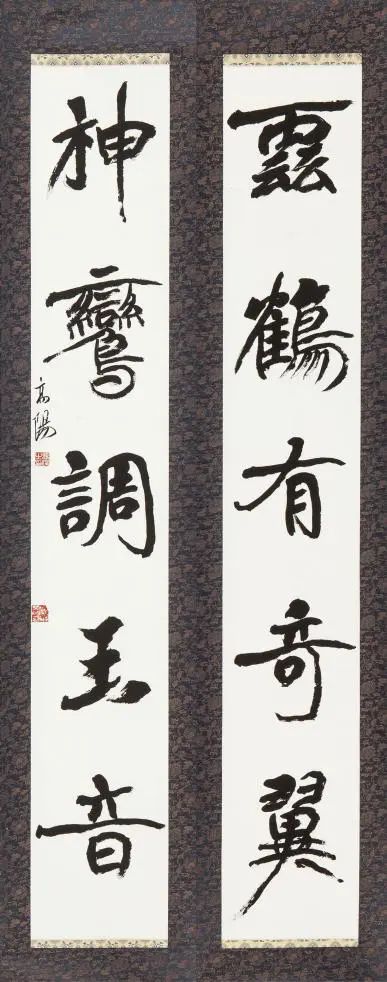 雲鶴有奇翼
神鸞調玉音
高陽